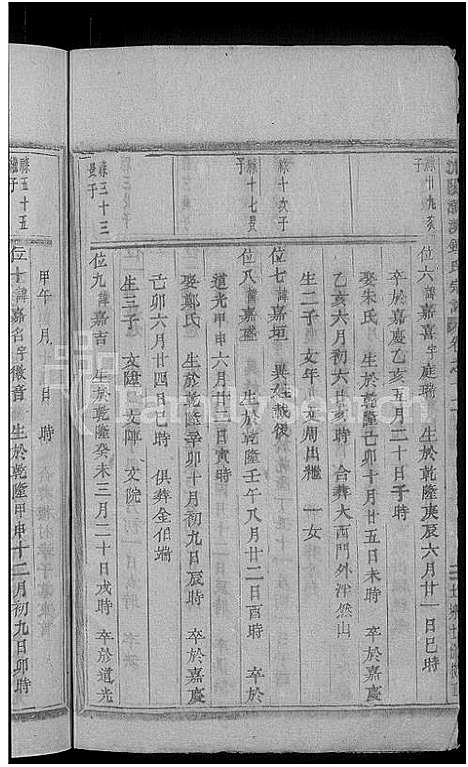 祿廿九亥子
位六 諱嘉喜字庭瞻 生於乾隆庚辰六月廿一日巳時
卒於嘉慶乙亥五月二十日子時
娶朱氏 生於乾隆己卯十月廿五日未時 卒於嘉慶
乙亥六月初六日亥時 合葬大西門外洋然山
生二子 文年 文周出繼 一女
祿十次子
位七 諱嘉垣 異姓載後
祿十七長子
位八 諱嘉盛 生於乾隆壬午八月廿二日酉時 卒於
道光甲申六月廿二日寅時
娶鄭氏 生於乾隆辛卯十月初九日辰時 卒於嘉慶
己卯六月廿四日巳時 俱葬金伯端
生三子 文陞 文陣 文院
祿三十三長子
位九 諱嘉吉 生於乾隆癸未三月二十日戌時 卒於道光
甲午 月 日 時
祿五十五繼子
位十 諱嘉名字徽音 生於乾隆甲申十二月初九日卯時